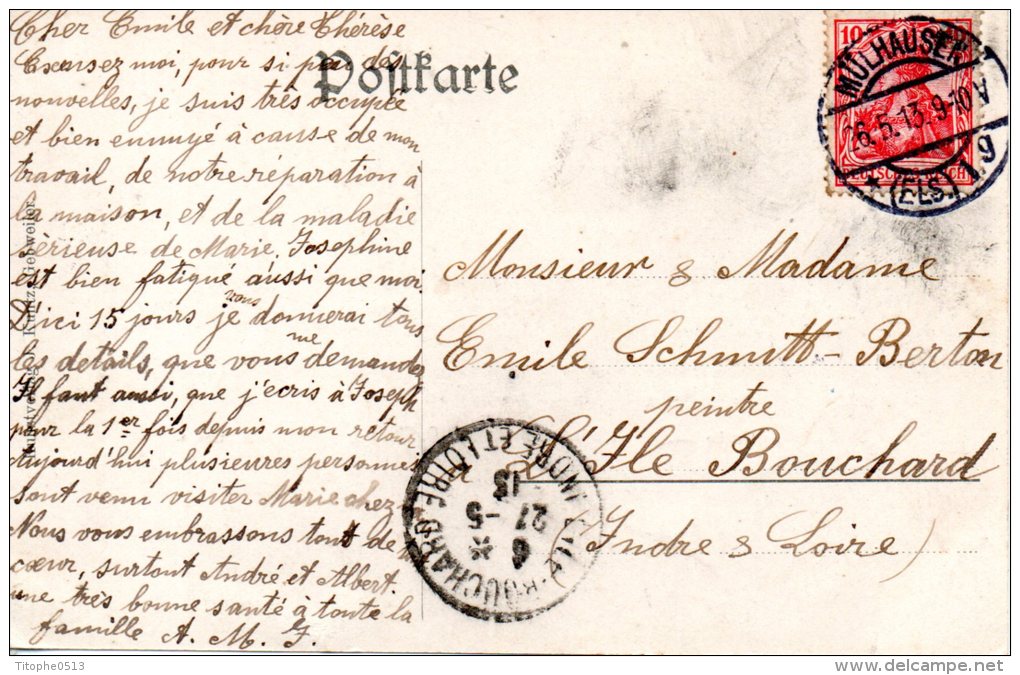 Cher Emile et chère Thérèse
Excusez moi, pour si peu des
nouvelles, je suis très occupée
et bien ennuyé à cause de mon
travail, de notre réparation à
la maison, et de la maladie
sérieuse de Marie. Josephine
est bien fatigué aussi que moi
D'ici 15 jours je vous donnerai tous
les details, que vous me demandez
Il faut aussi, que j'écris à Joseph
pour la 1er fois depuis mon retour
aujourd'hui plusieures personnes
sont venu visiter Marie chez
Nous vous embrassons tout de
cœur, surtout André et Albert.
une très bonne santé à toute la
famille A. M. J.
Postkarte
10
DEUTSCHES REICH
MÜLHAUSEN
26.5.13.9-10V
* (ELS.) 1g
Monsieur & Madame
Emile Schmitt-Berton
peintre
à L'Ile Bouchard
(Indre & Loire)
BOUCHARD
INDRE ET LOIRE
6 *
27 -5
13
Titophe0513
www.delcampe.net